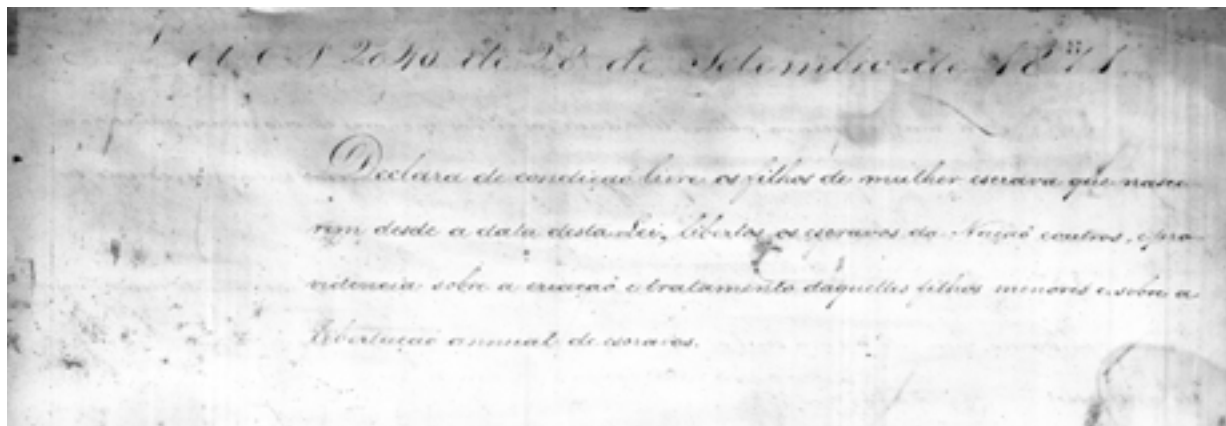 Lei N 2040 de 28 de Setembro de 1871.
Declara de condição livre os filhos de mulher escrava que nasce-
rem desde a data desta Lei, libertos os escravos da Nação e outros, e pro-
videncia sobre a criação e tratamento daquelles filhos menores e sobre a
libertação annual de escravos.